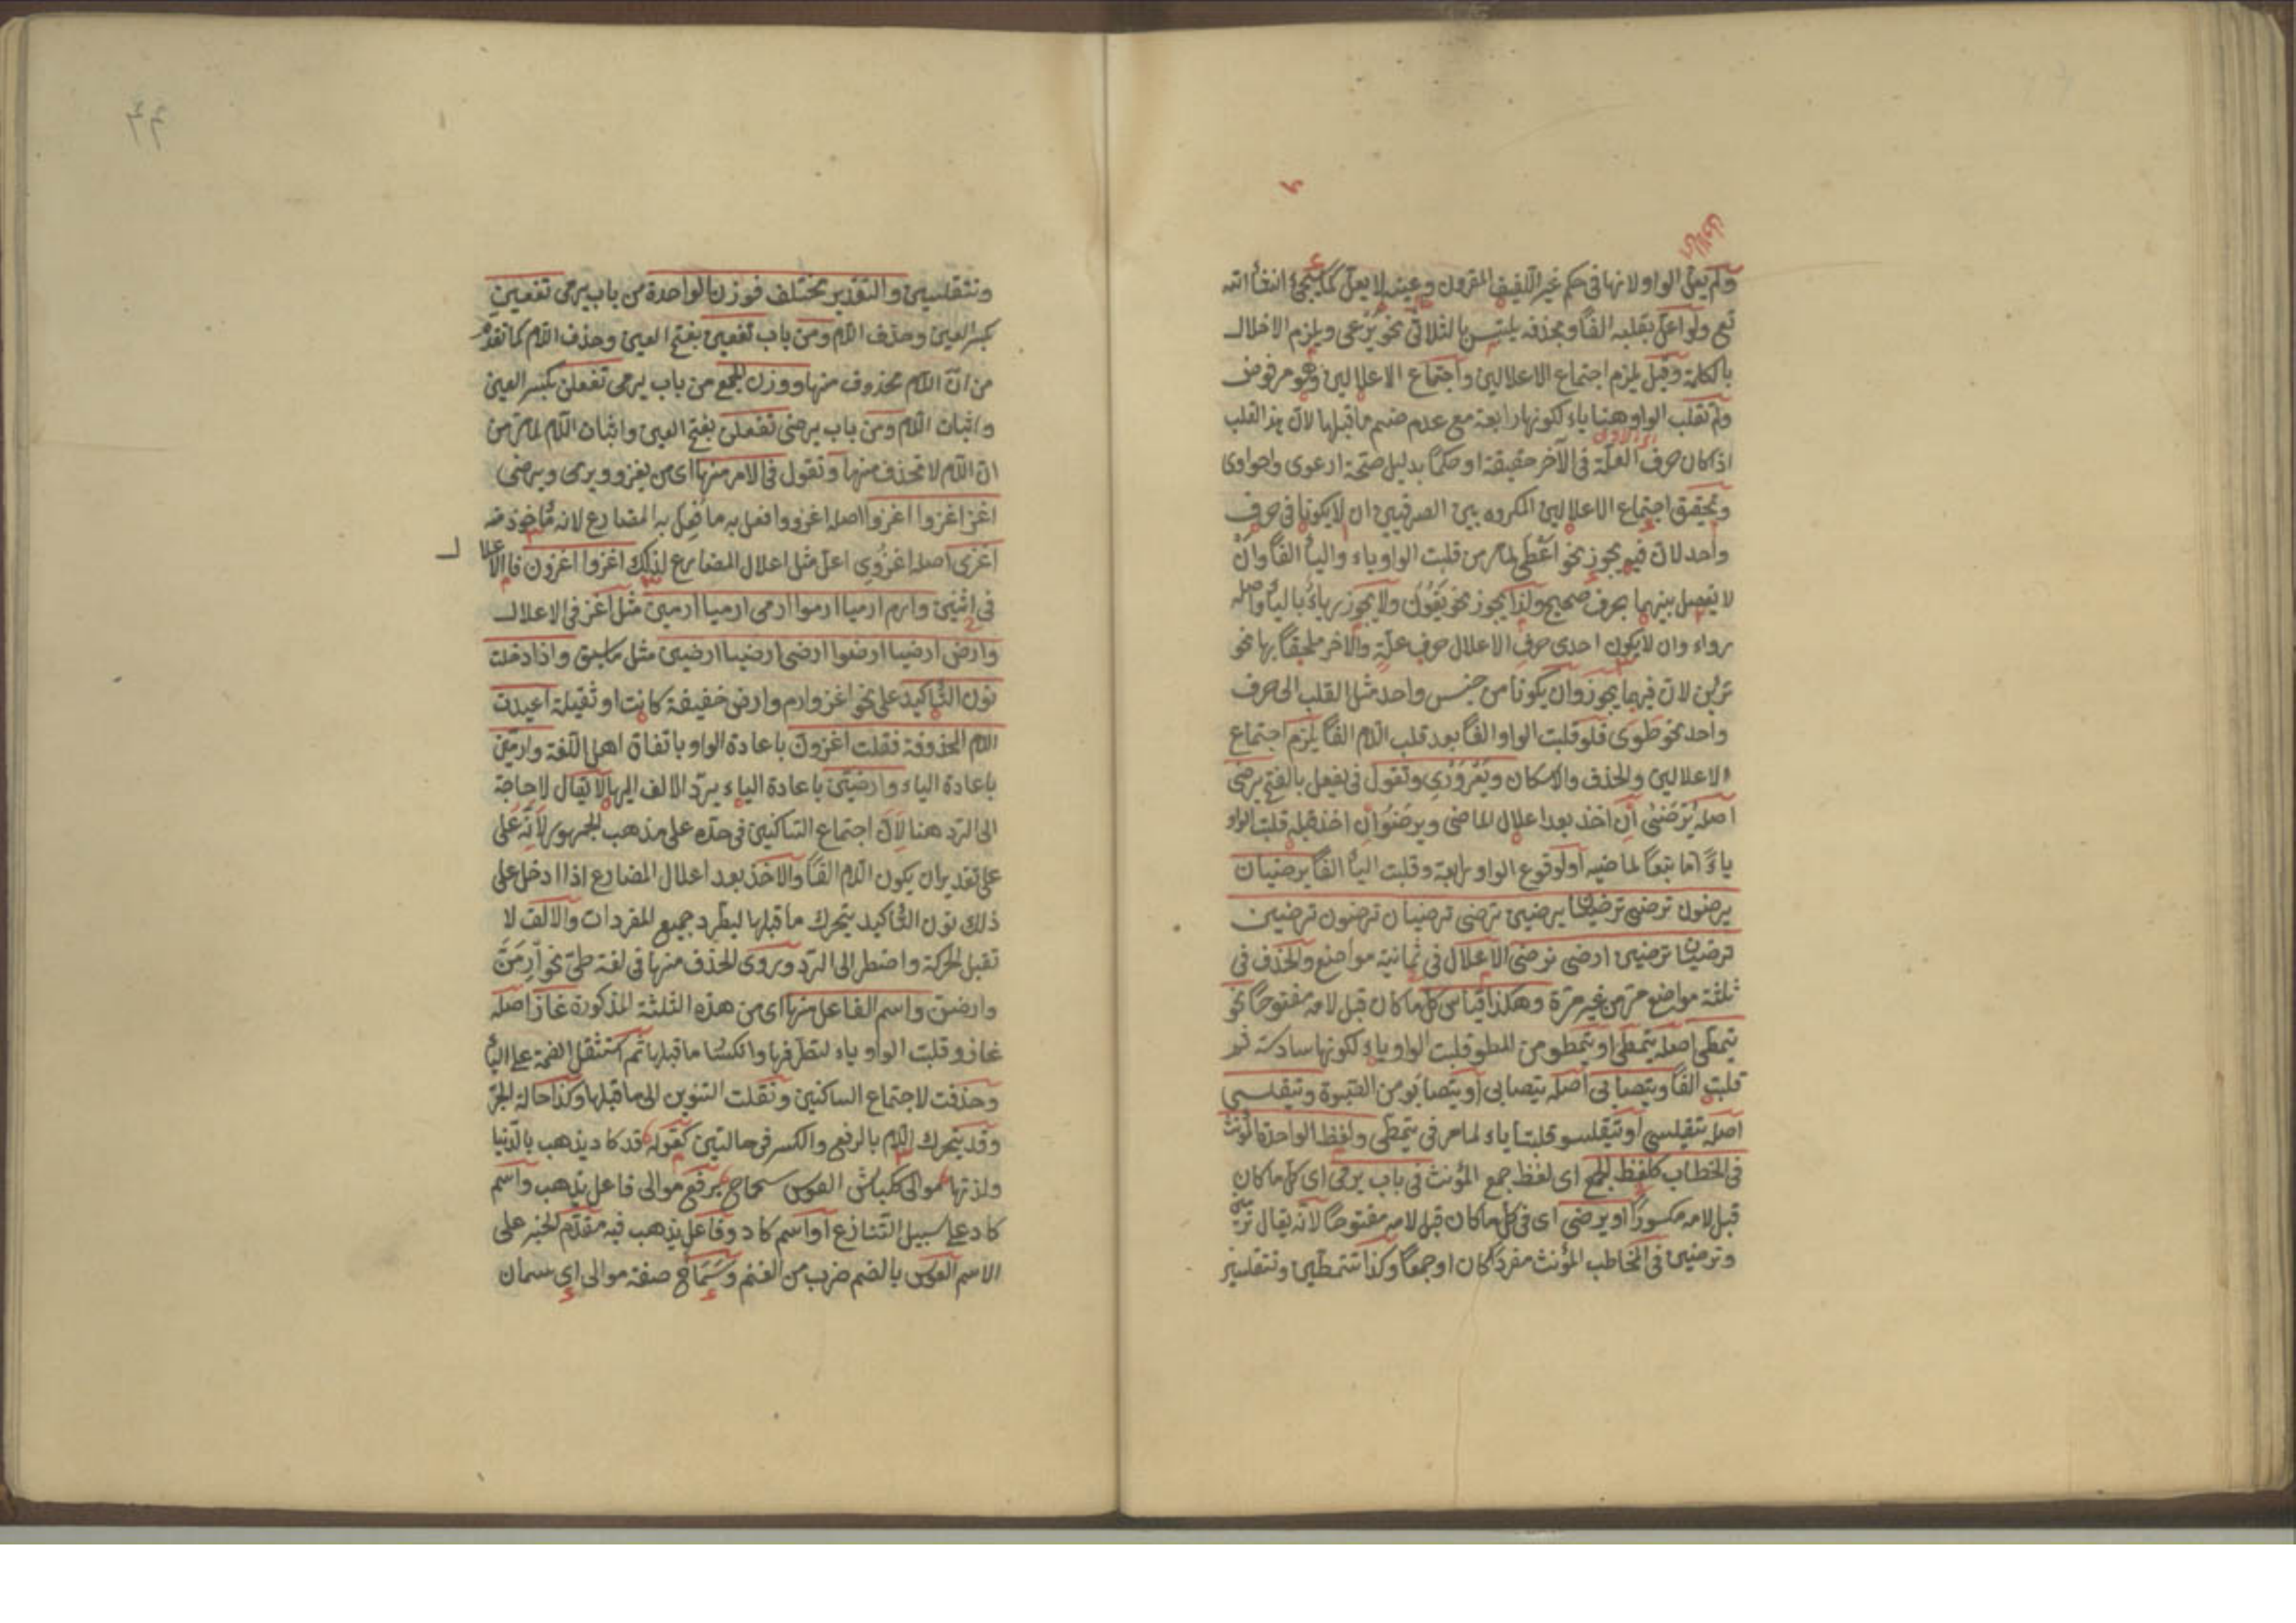 ولم يعل الواو لانها في حكم غير اللفيف المقرون وعينه لا يعل كما يجئ انشأ الله
تع ولو اعل بقلبه الفا وبحذفه يلتبس بالثلاثي نحو يرعى ويلزم الاخلال
بالكلمة وقيل يلزم اجتماع الاعلالين واجتماع الاعلالين وهو مرفوض
ولم تقلب الواو هنا ياء لكونها رابعة مع عدم ضم ما قبلها لان هذا القلب
اذ كان حرف العلة في الآخر حقيقة او حكما بدليل صحة ارعوى واحواوى
وتحقيق اجتماع الاعلالين المكروه بين الصرفيين ان لا يكونا في حرف
واحد لان فيه يجوز نحو اعطى لما مر من قلبت الواو ياء واليأ الفا وان
لا يفصل بينهما بحرف صحيح ولذا يجوز نحو يقون ولا يجوز رياء باليأ واصله
رواء وان لا يكون احدى حرف الاعلال حرف علة والاخر ملحقا بها نحو
ترين لان فيهما يجوز وان يكونا من جنس واحد مثل القلب الى حرف
واحد نحو طوى فلو قلبت الواو الفا بعد قلب اللام الفا يلزم اجتماع
الاعلالين والحذف والاسكان ويعروري وتقول في يفعل بالفتح يرضى
اصله يرضى ان اخذ بعد اعلال الماضى ويرضو ان اخذ قبله قلبت الواو
ياء اما تبعا لماضيه او لوقوع الواو رابعة وقلبت اليأ الفا يرضيان
يرضون ترضى ترضيان يرضين ترضى ترضيان ترضون ترضين
ترضيان ترضين ارضى نرضى الاعلال في ثمانية مواضع والحذف في
ثلثة مواضع مر من غير مرة وهكذا قياس كل ما كان قبل لامه مفتوحا نحو
يتمطى اصله يتمطى او يتمطو من المطو قلبت الواو ياء لكونها سادسة ثم
قلبت الفا ويتصابى اصله يتصابى او يتصابو من الصبوة ويتقلسى
اصله يتقلسى او يتقلسو قلبت ياء لما مر في يتمطى ولفظ الواحدة المؤنث
في الخطاب كلفظ الجمع اى لفظ جمع المؤنث في باب يرمى اى كل ما كان
قبل لامه مكسورا او يرضى اى في كل ما كان قبل لامه مفتوحا لانه يقال ترمين
وترضين في المخاطب المؤنث مفردا كان او جمعا وكذا تتمطين وتتقلسين
۴۴
وتتقلسين والتقدير مختلف فوزن الواحدة من باب يرمى تفعين
بكسر العين وحذف اللام ومن باب تفعين بفتح العين وحذف اللام كما تقدم
من ان اللام محذوف منها ووزن الجمع من باب يرمى تفعلن بكسر العين
واثبات اللام ومن باب يرضى تفعلن بفتح العين واثبات اللام لما مر من
ان اللام لا تحذف منها وتقول في الامر منها اى من يغزو ويرمى ويرضى
اغز اغزوا اغزوا اصله اغزووا فعل به ما فعل به المضارع لانه مأخوذ منه
اغزى اصله اغزوى اعل مثل اعلال المضارع لذلك اغزوا اغزون فالاعلال
في اثنين وارم ارميا ارموا ارمى ارميا ارمين مثل اغز في الاعلال
وارض ارضيا ارضوا ارضى ارضيا ارضين مثل ما سبق واذا دخلت
نون التأكيد على نحو اغز وارم وارض خفيفة كانت او ثقيلة اعيدت
اللام المحذوفة فقلت اغزون باعادة الواو باتفاق اهل اللغة وارمين
باعادة الياء وارضين باعادة الياء يرد الالف اليها لا يقال لا حاجة
الى الرد هنا لان اجتماع الساكنين في حده على مذهب الجمهور لانه على
على تقدير ان يكون اللام الفا والاخذ بعد اعلال المضارع اذا ادخل على
ذلك نون التأكيد يتحرك ما قبلها ليطرد جميع المفردات والالف لا
تقبل الحركة واضطر الى الرد ويروى الحذف منها في لغة طئ نحو ارمن
وارضن واسم الفاعل منها اى من هذه الثلثة المذكورة غاز اصله
غازو قلبت الواو ياء لتطرفها وانكسار ما قبلها ثم استثقل الضمة على اليأ
وحذفت لاجتماع الساكنين ونقلت التنوين الى ما قبلها وكذا حالة الجر
وقد يتحرك اللام بالرفع والكسر في حالتين كقوله قد كاد يذهب بالدنيا
ولذتها موالى ككباش العوس سحاح برفع موالى فاعل يذهب واسم
كاد على سبيل التنازع او اسم كاد وفاعل يذهب فيه مقدم الخبر على
الاسم العوس بالضم ضرب من الغنم وسحاح صفة موالى اى سمان